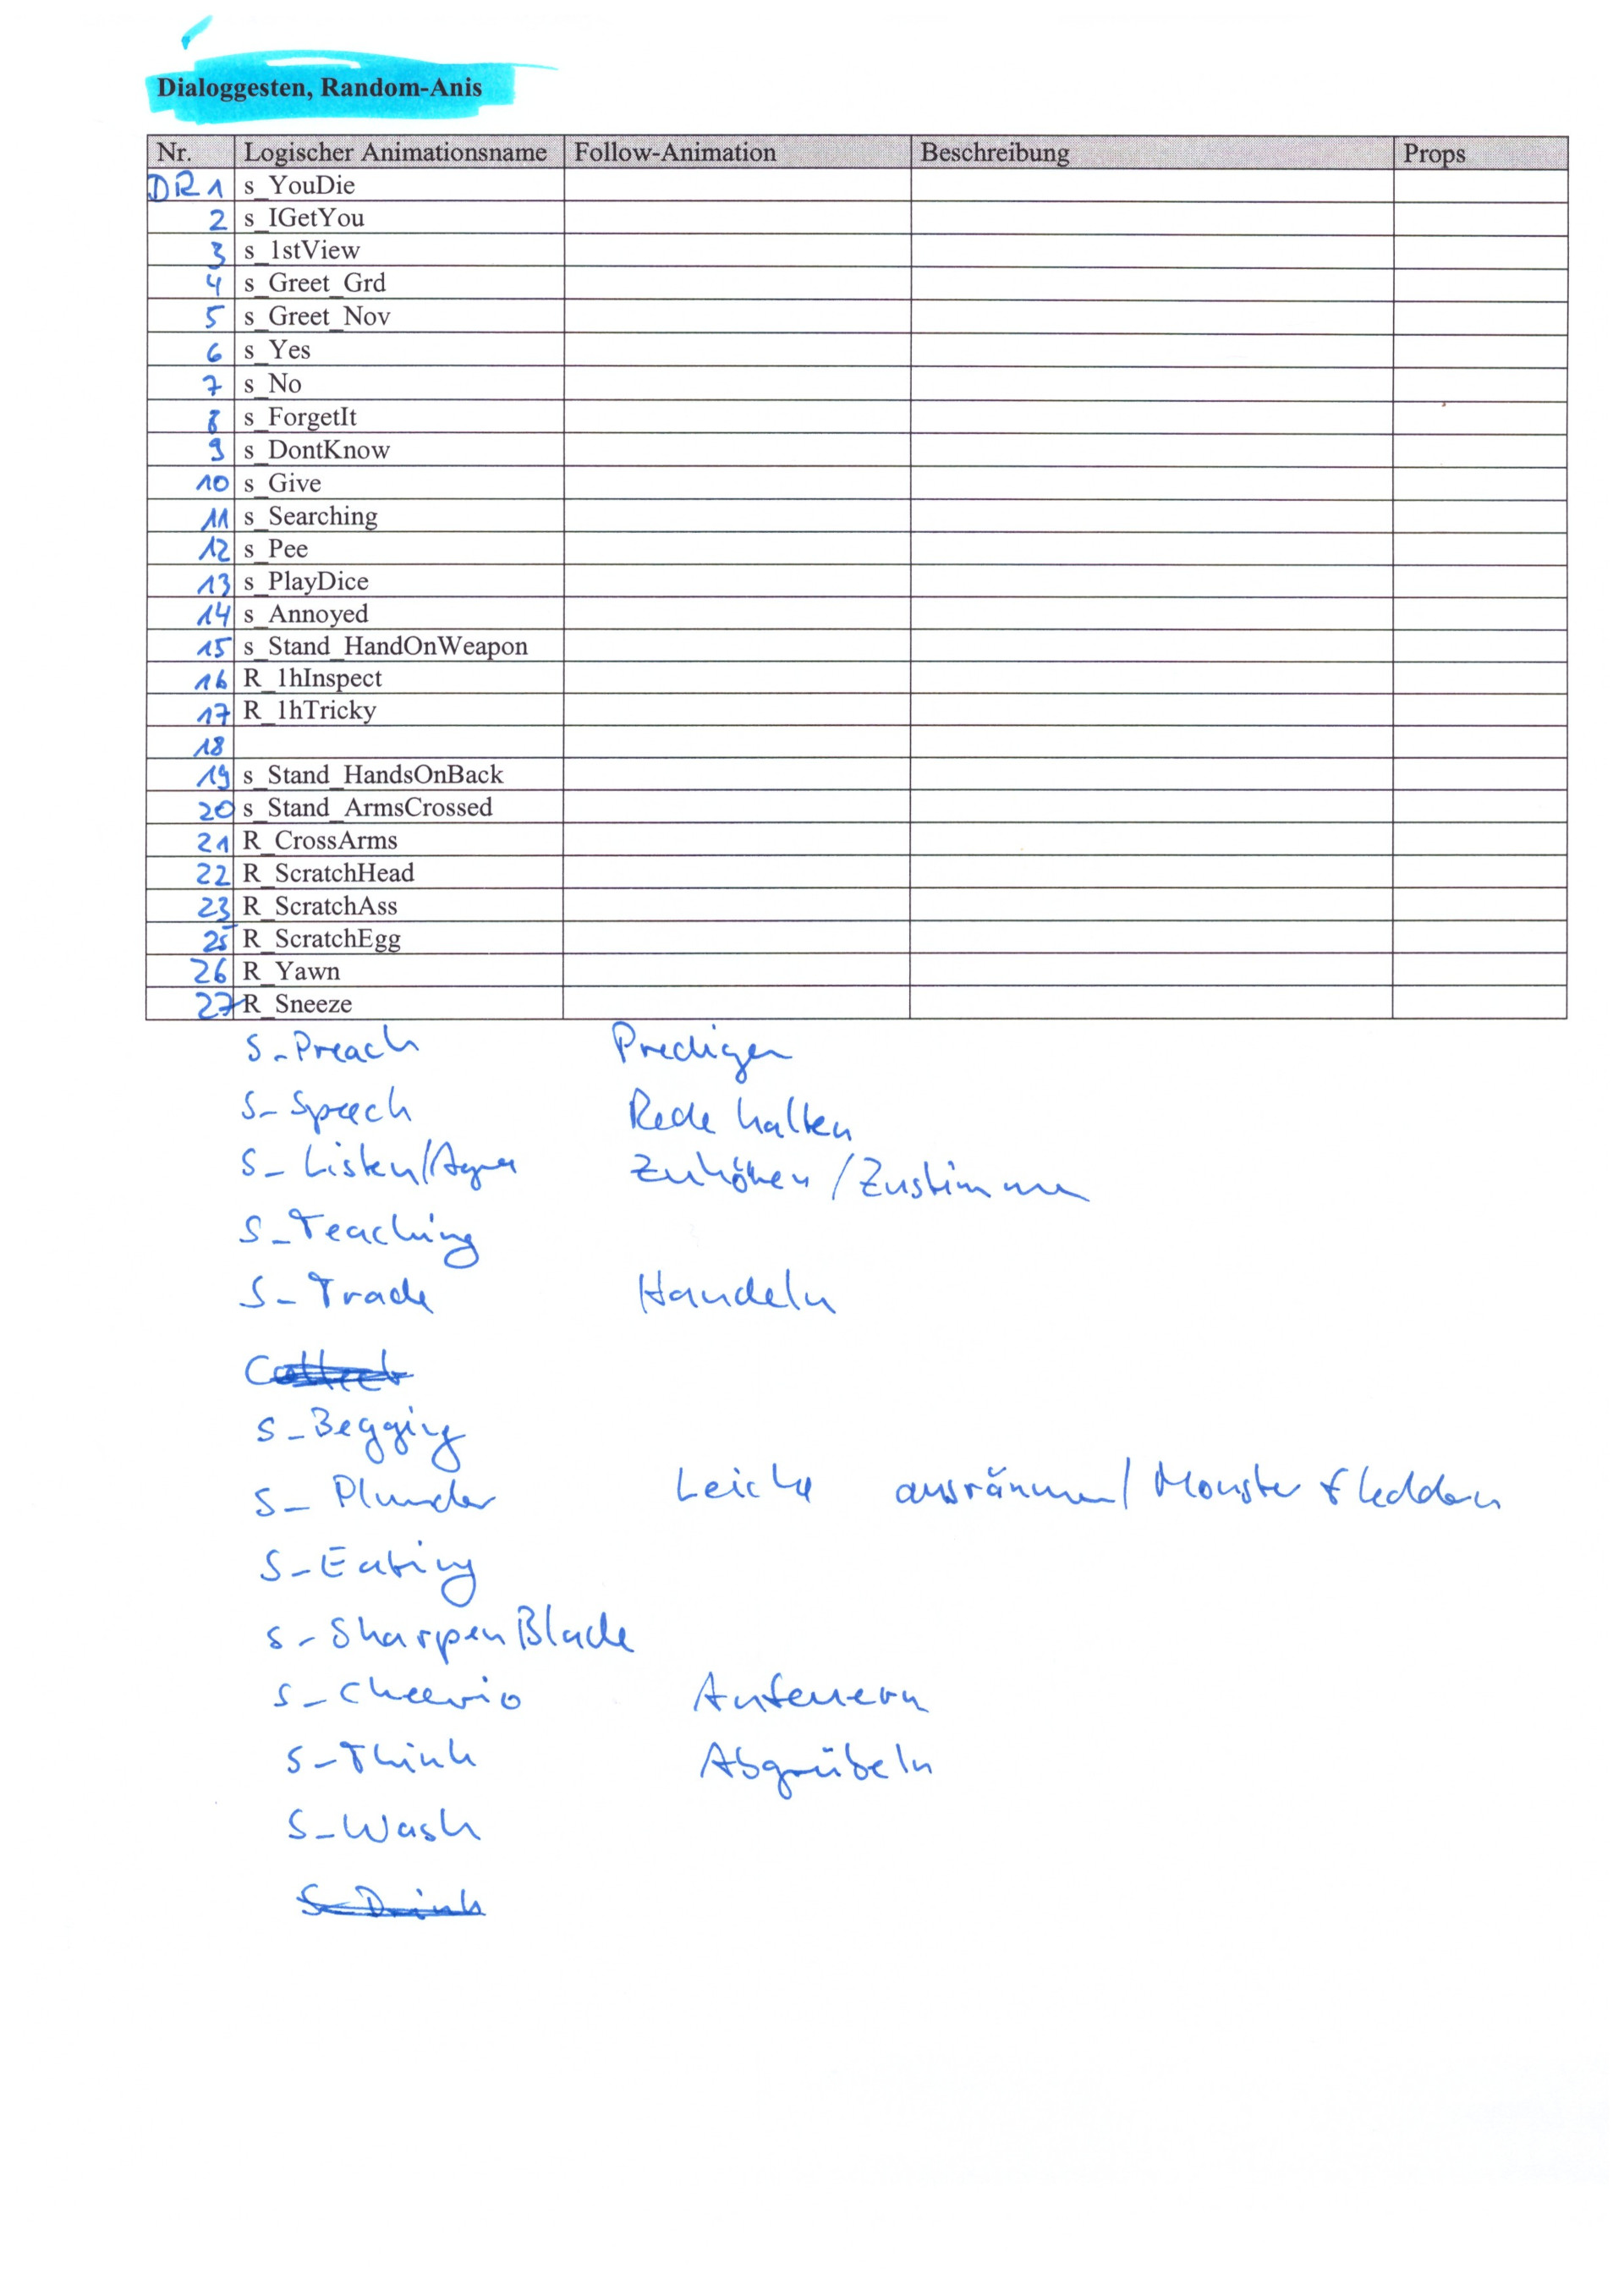 Dialoggesten, Random-Anis
Nr. Logischer Animationsname Follow-Animation Beschreibung Props
DR 1 s_YouDie
2 s_IGetYou
3 s_1stView
4 s_Greet_Grd
5 s_Greet_Nov
6 s_Yes
7 s_No
8 s_ForgetIt
9 s_DontKnow
10 s_Give
11 s_Searching
12 s_Pee
13 s_PlayDice
14 s_Annoyed
15 s_Stand_HandOnWeapon
16 R_1hInspect
17 R_1hTricky
18
19 s_Stand_HandsOnBack
20 s_Stand_ArmsCrossed
21 R_CrossArms
22 R_ScratchHead
23 R_ScratchAss
25 R_ScratchEgg
26 R_Yawn
27 R_Sneeze
S_Preach Predigen
S_Speech Rede halten
S_Listen/Agree Zuhören / Zustimmen
S_Teaching
S_Trade Handeln
Collect
S_Begging
S_Plunder Leiche ausräumen / Monster fleddern
S_Eating
S_SharpenBlade
S_Cheerio Anfeuern
S_Think Abgrübeln
S_Wash
S_Drink